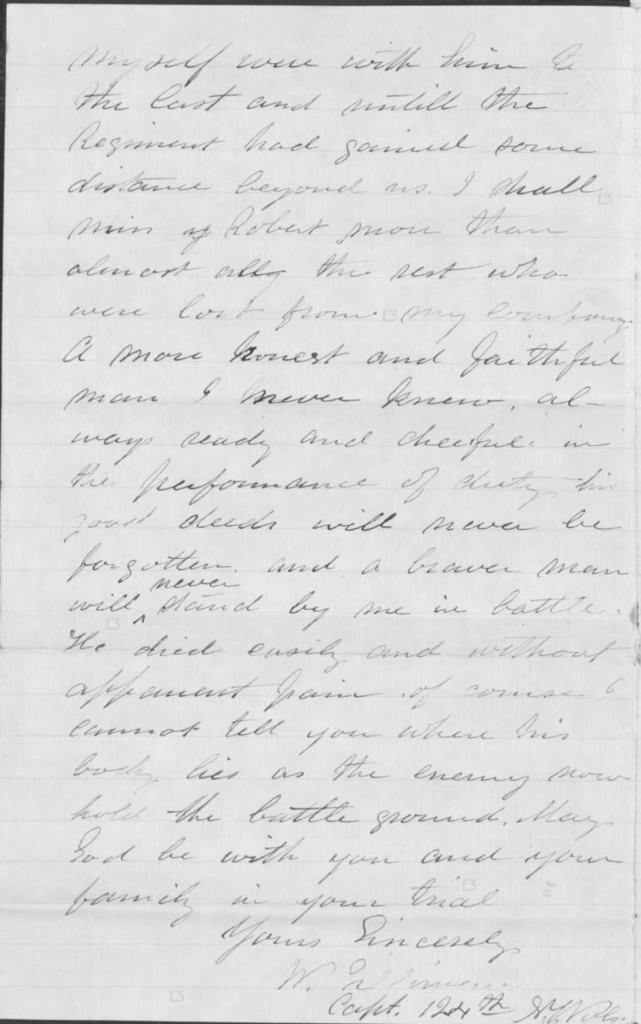 myself were with him to
the last and untill the
Regiment had gained some
distance beyond us. I shall
miss Robert more than
almost all the rest who
were lost from my company
A more honest and faithful
man I never knew, al-
ways ready and cheerful in
the performance of duty his
good deeds will never be
forgotten. and a braver man
never
will ^ stand by me in battle.
He died easily and without
apparent pain. of course I
cannot tell you where his
body lies as the enemy now
hold the battle ground. May
God be with you and your
family in your trial
Yours Sincerely
W.
Capt. 124th N.Y. Vols.